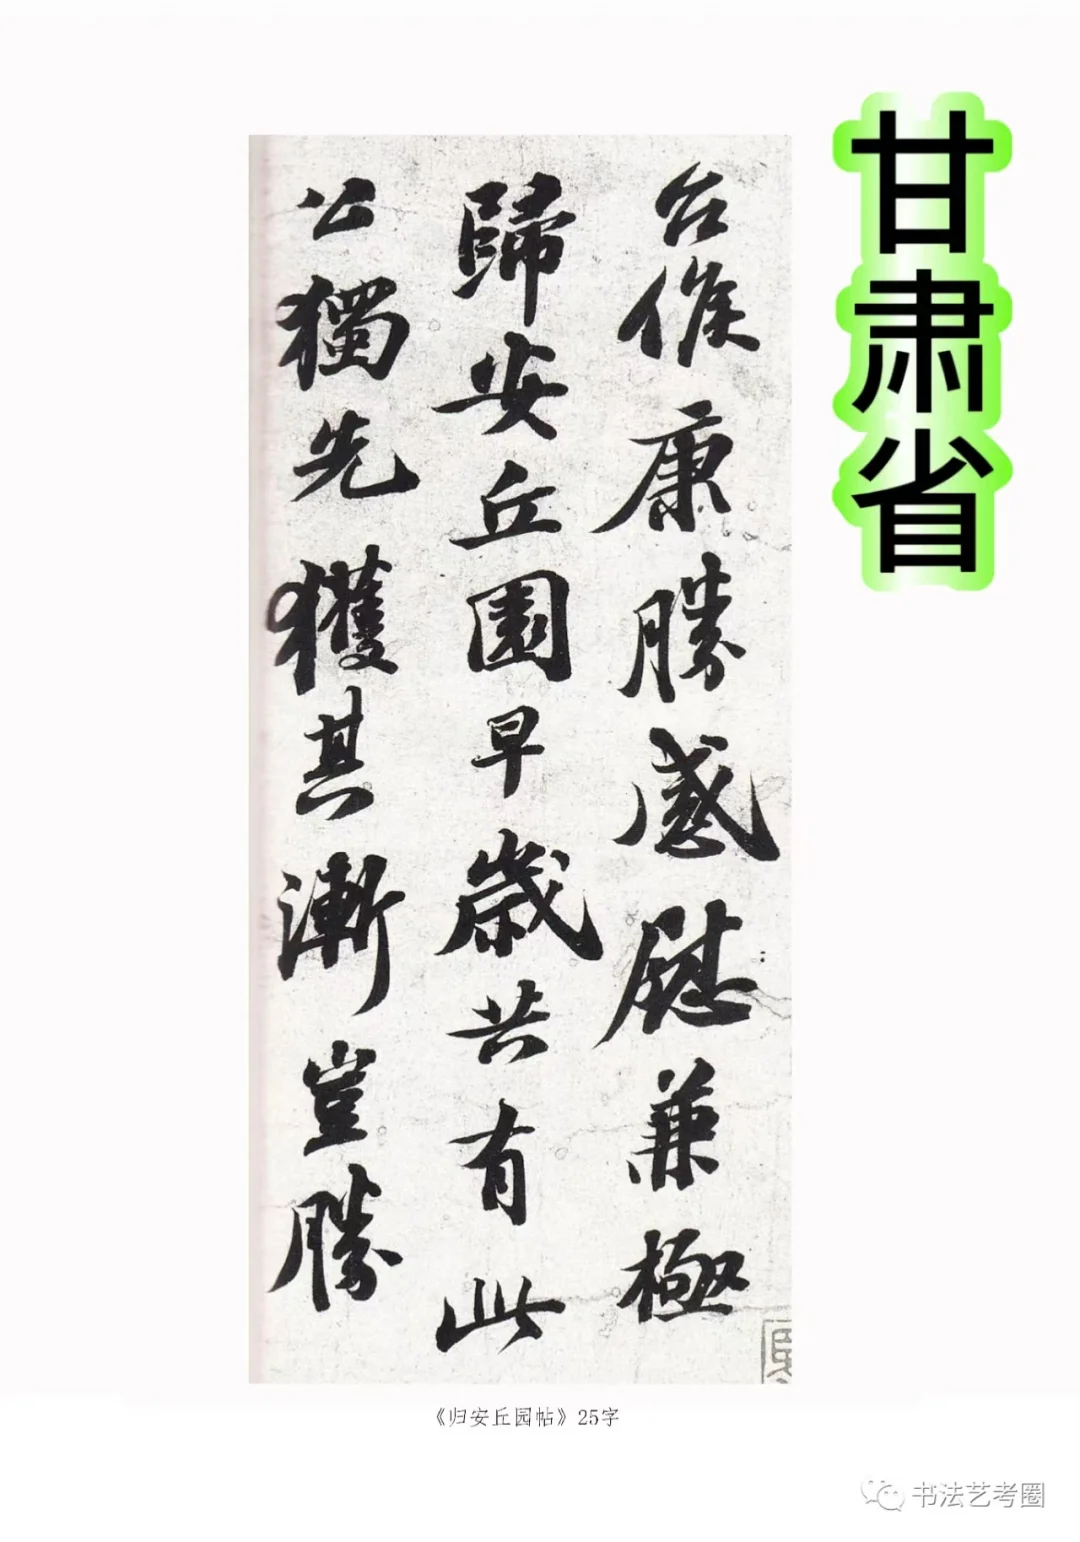 甘肃省
台候康勝感慰兼極
歸安丘園早歲共有此
公獨先獲其漸豈勝
《归安丘园帖》25字
书法艺考圈